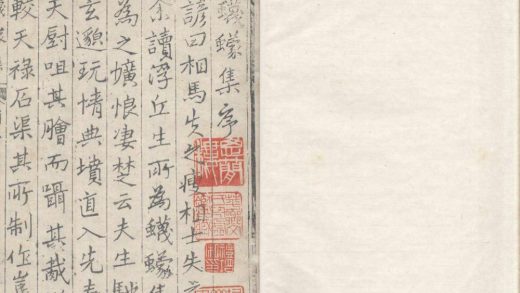 蠛蠓集序
諺曰相馬失之瘦相士失
余讀浮丘生所為蠛蠓集
為之壙悢凄楚云夫生馳
玄邈玩情典墳直入先秦
天廚咀其膾而躡其胾
較天祿石渠其所制作豈